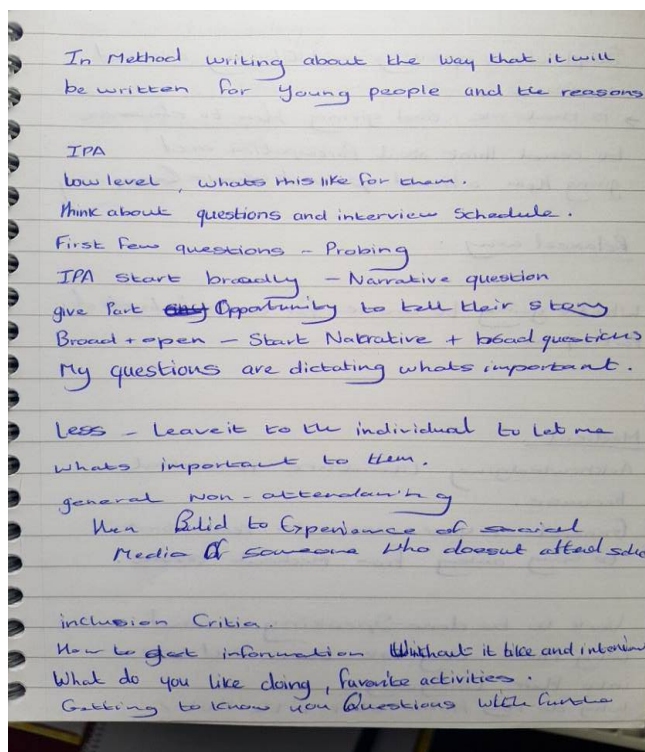 In Method writing about the way that it will
be written for young people and the reasons
IPA
low level, whats this like for them.
Think about questions and interview schedule.
First few questions - Probing
IPA start broadly - Narrative question
give Part Opportunity to tell their story
Broad + open - Start Natrative + boad questions
My questions are dictating whats important.
Less - Leave it to the individual to let me
whats important to them.
general Non-attendaning
then to Experience of social
Media of someone who doesnt attend
inclusion Critia.
How to get information Without it like and
What do you like doing, favorite activities.
Getting to know you Questions with